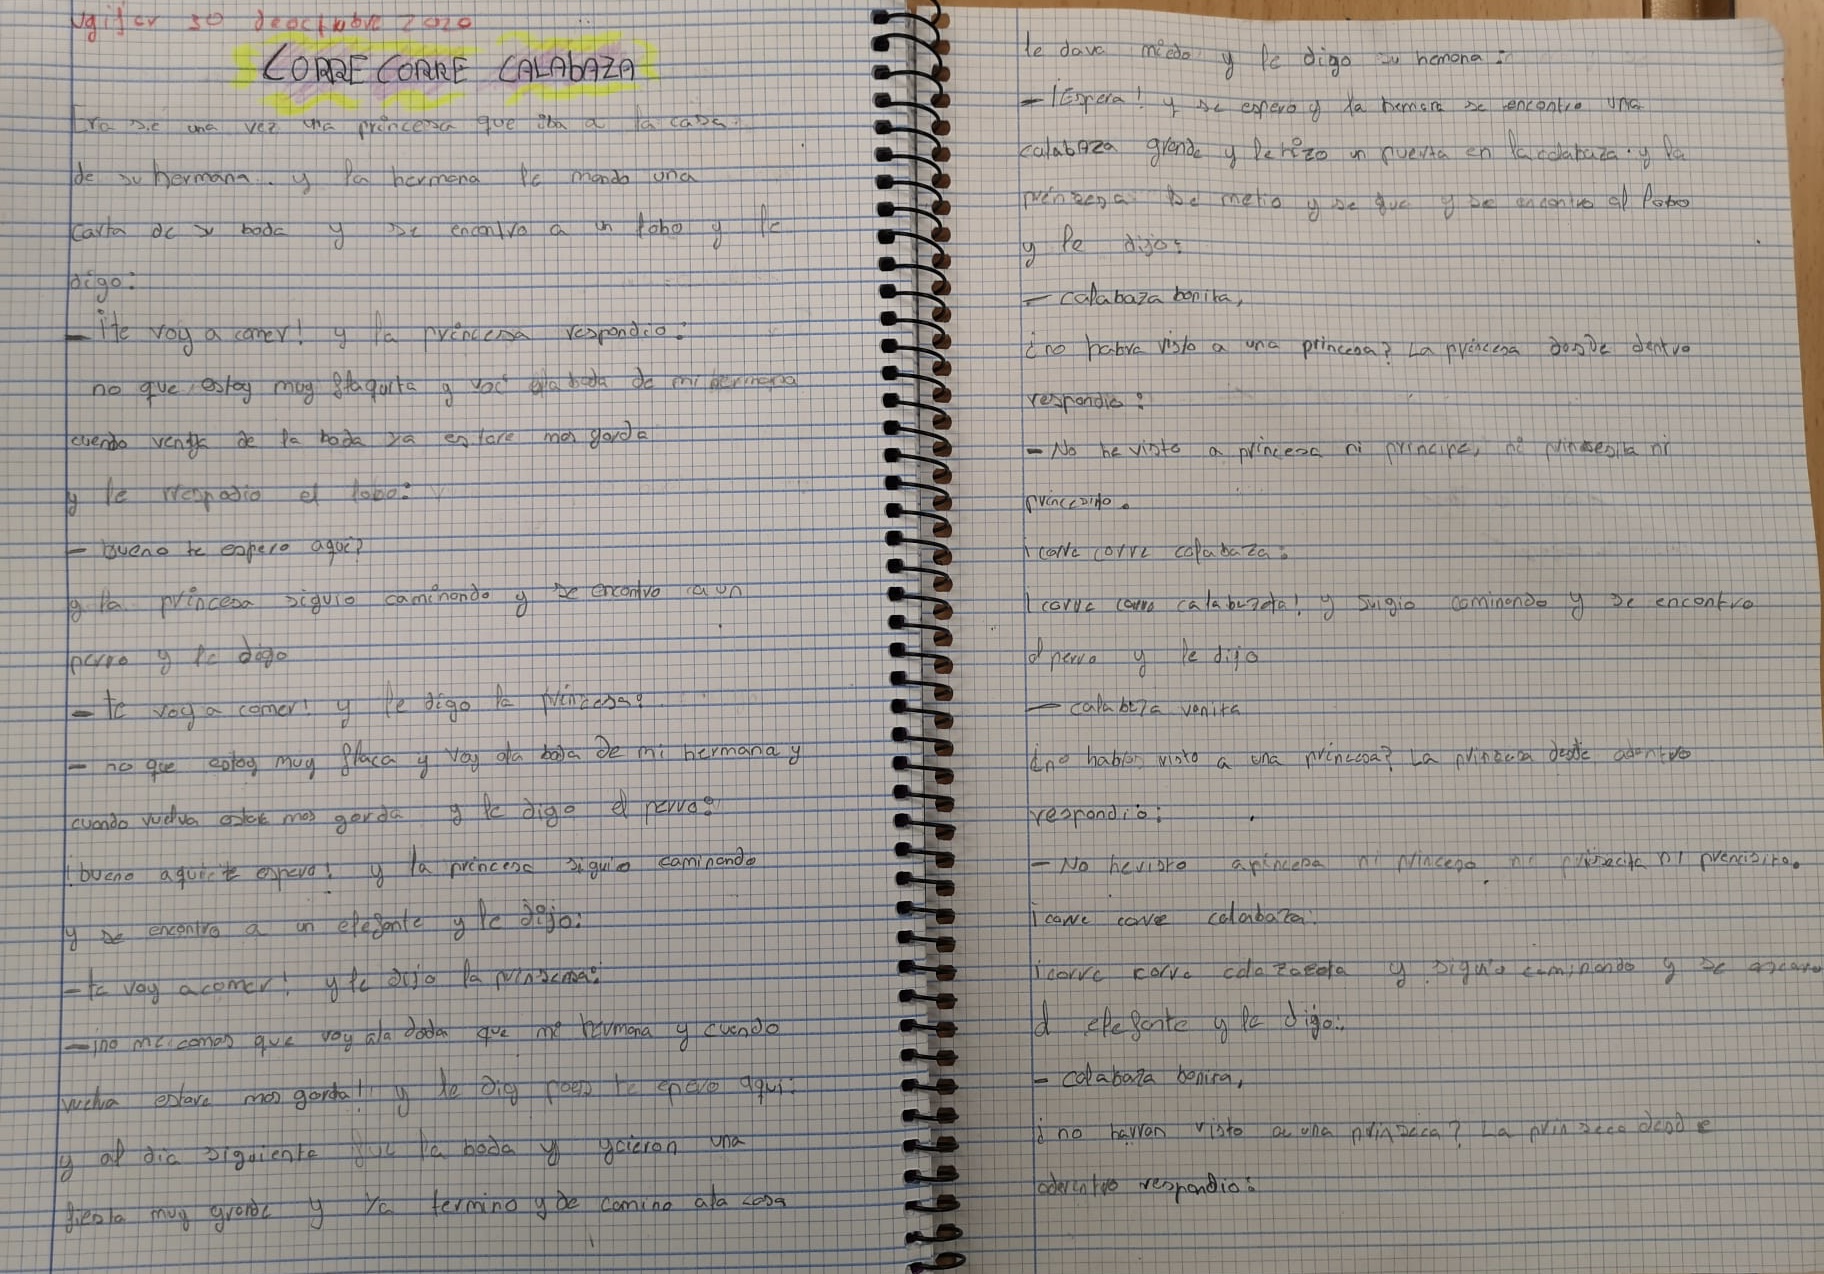 Ugijar 30 deoctubre 2020
CORRE CORRE CALAbAZA
Erase una vez una princesa que iba a la casa
de su hermana. y la hermana le mando una
carta de su boda y se encontro a un lobo y le
digo:
- ¡te voy a comer! y la princesa respondio:
no que estoy muy flaquita y voi ala boda de mi hermana
cuendo venga de la boda ya estare mas gorda
y le respodio el lobo:
- bueno te espero aqui?
y la princesa siguio caminando y se encontro a un
perro y le digo
- te voy a comer! y le digo la princesa:
- no que estoy muy flaca y voy ala boda de mi hermana y
cuando vuelva mas gorda y le digo el perro:
¡bueno aqui te espero! y la princesa siguio caminando
y se encontro a un elefante y le dijo:
- te voy a comer! y le dijo la prinsesa:
- ¡no me comas que voy ala que mi hermana y cuendo
vuelva estare mas gorda! y le dig te epero aqui:
y al dia siguiente fue la boda y una
fiesta muy grande y ya termino y de camino ala casa
le dava miedo y le digo su hemana:
- ¡Espera! y se espero y la hemana se encontro una
calabaza grande y le hizo un puerta en la calabaza. y la
prinsesa se metio y se fue y se encontro al lobo
y le dijo:
- calabaza bonita,
¿no habra visto a una princesa? La princesa desde dentro
respondio:
- No he visto a princesa ni principe, ni ni
princesito.
¡corre corre calabaza:
¡corre corre y suigio caminando y se encontro
el perro y le dijo
- calabaza vonita
¿no habra visto a una princesa? La princesa desde adentro
respondio:
- No hevisto aprincesa ni ni ni
¡corre corre calabaza:
¡corre corre y siguio caminando y se
el elefante y le digo:
- calabaza bonita,
¿no harran visto a una prinseca? La prinseca desde
respondio: